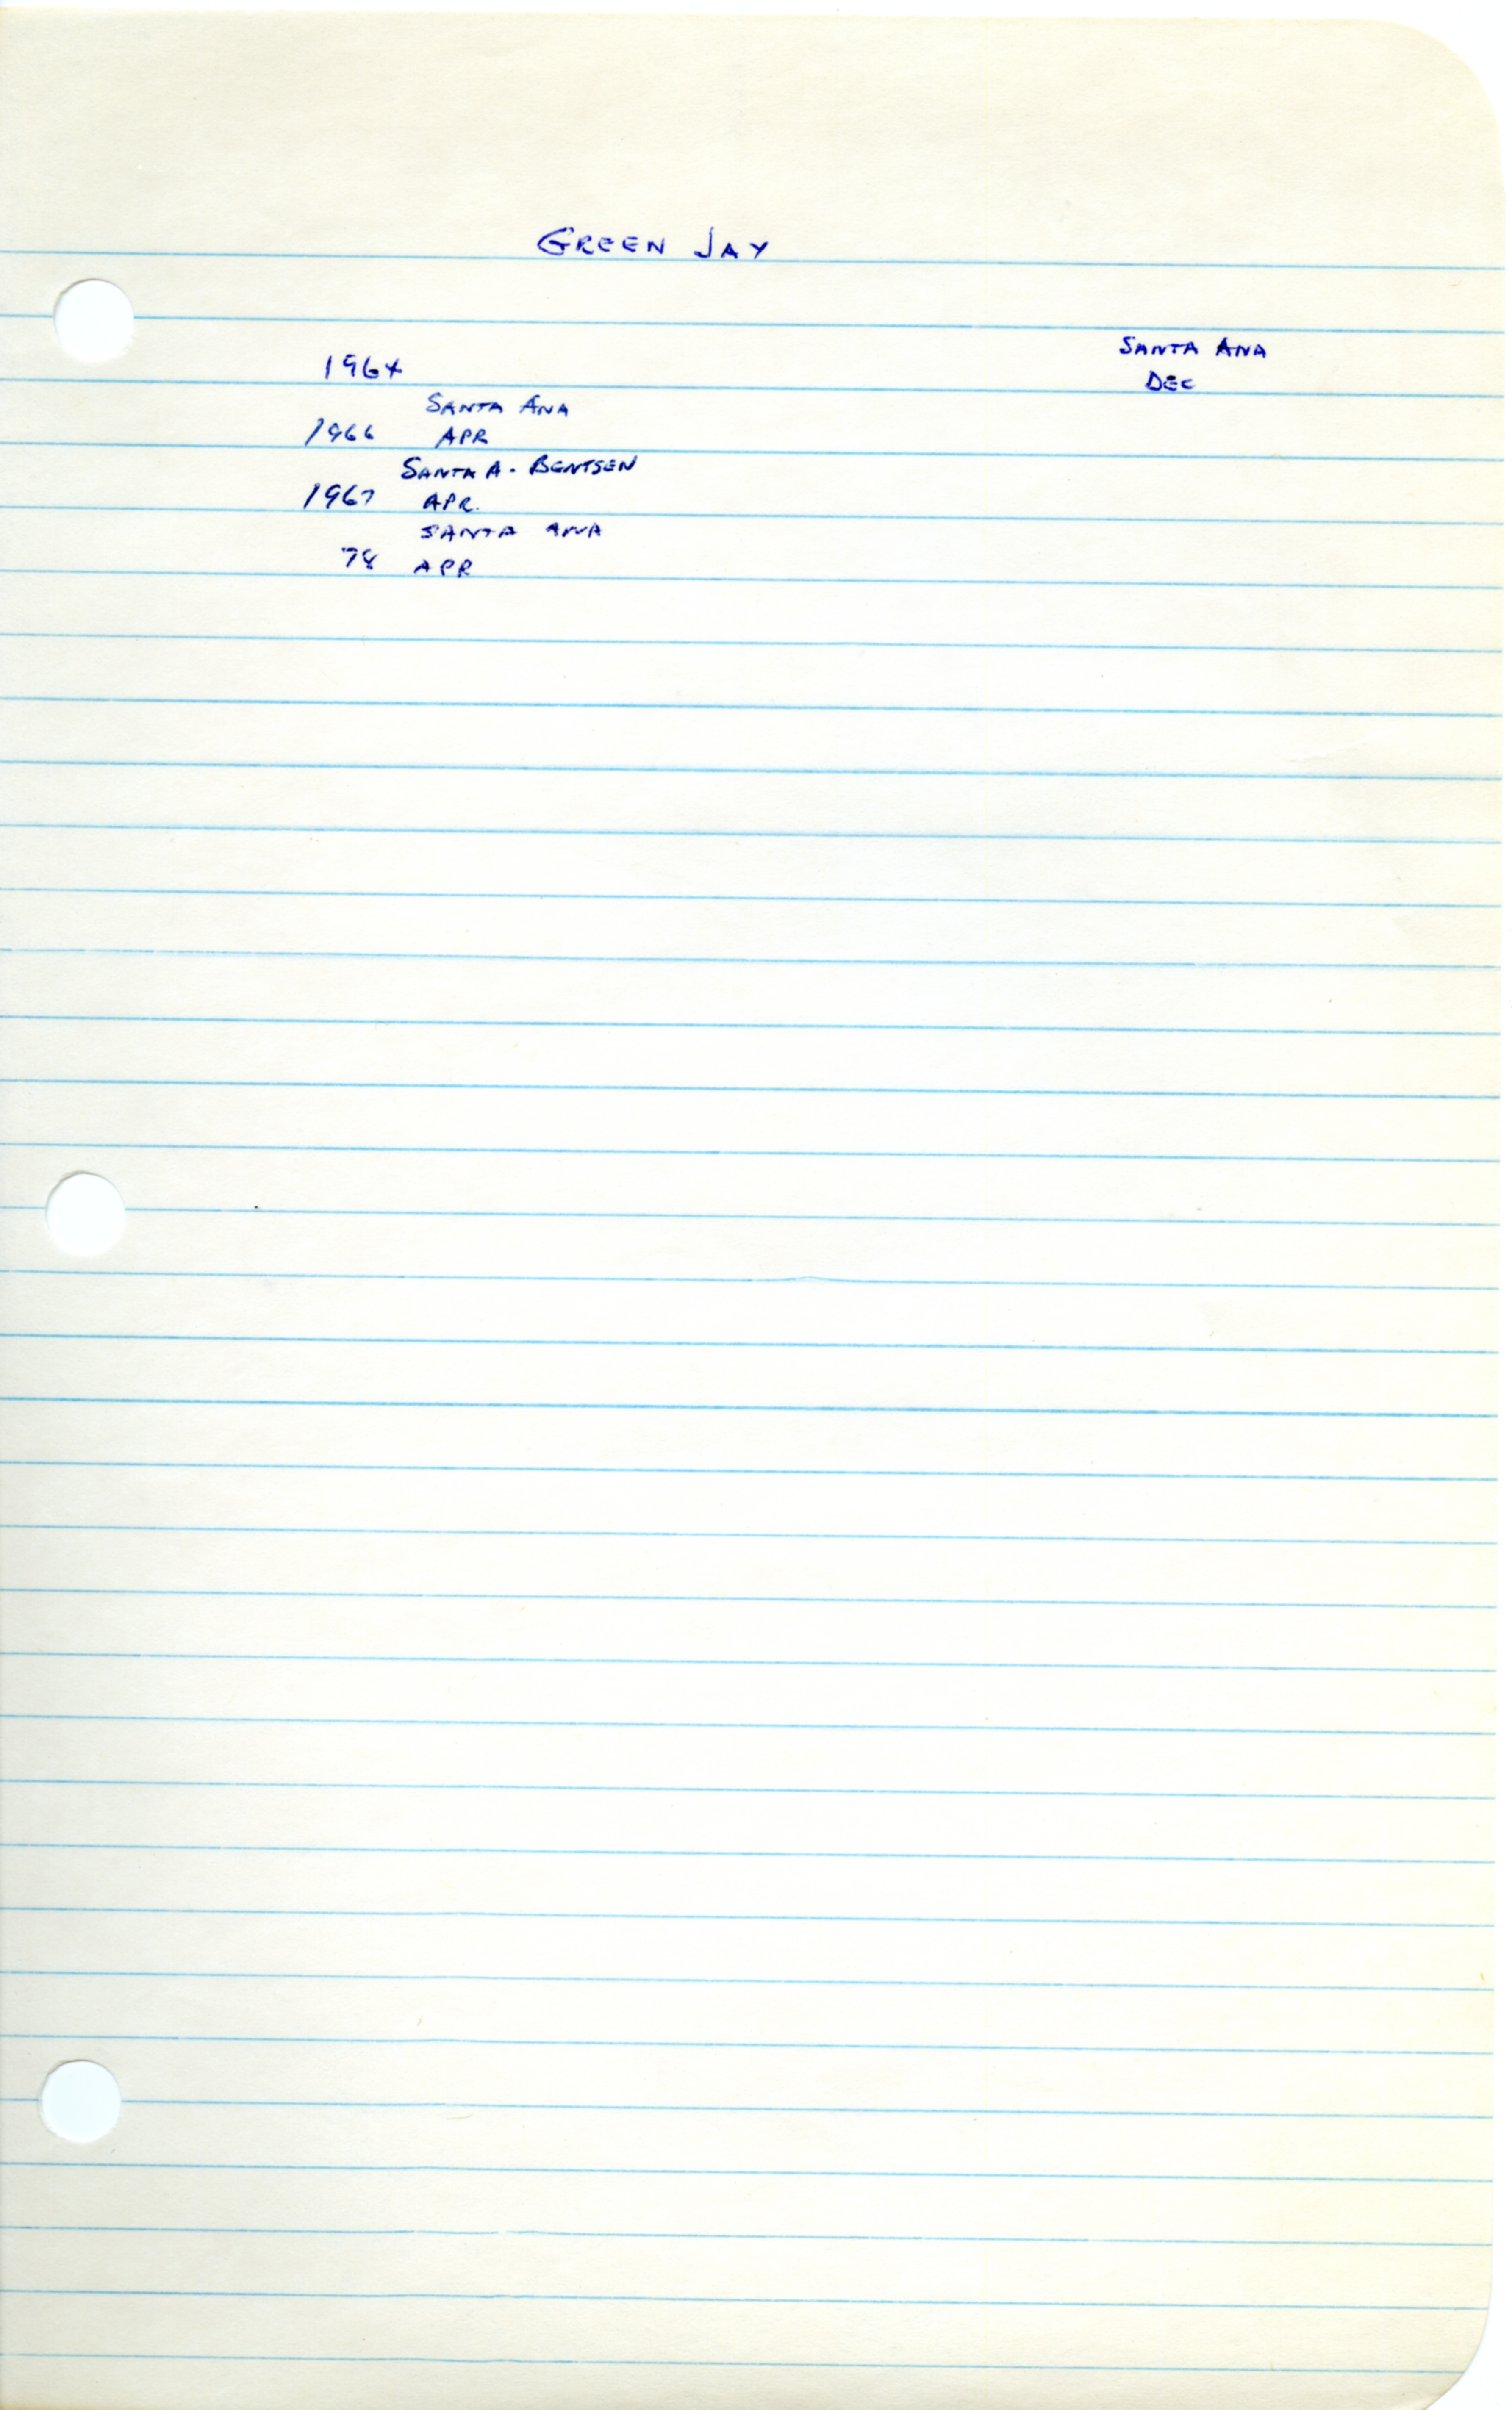 GREEN JAY
SANTA ANA
1964 DEC
SANTA ANA
1966 APR
SANTA A. BENTSEN
1967 APR.
SANTA ANA
78 APR